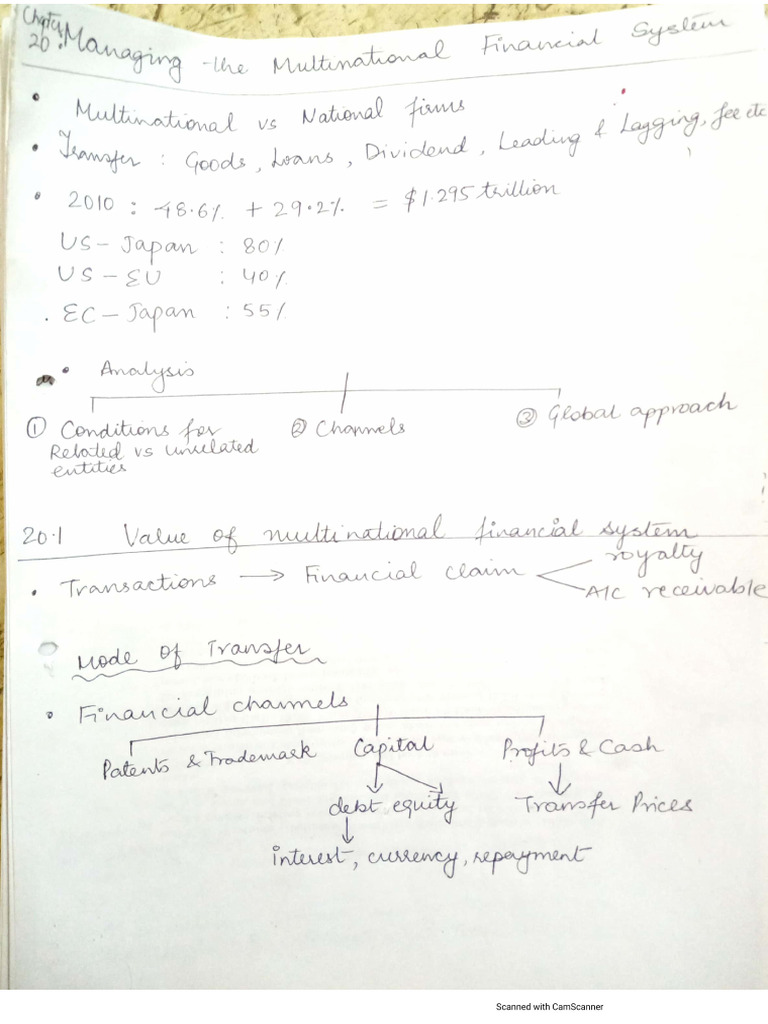 Chapter 20: Managing the Multinational Financial System
• Multinational vs National firms
• Transfer : Goods, Loans, Dividend, Leading & Lagging, fee etc
• 2010 : 48.6% + 29.2% = $1.295 trillion
US - Japan : 80%
US - EU : 40%
. EC - Japan : 55%
• Analysis
① Conditions for Related vs unrelated entities
② Channels
③ Global approach
20.1 Value of multinational financial system
• Transactions → Financial claim
royalty
A/C receivable
Mode of Transfer
• Financial channels
Patents & Trademark
Capital
Profits & Cash
debt equity
Transfer Prices
interest, currency, repayment
Scanned with CamScanner